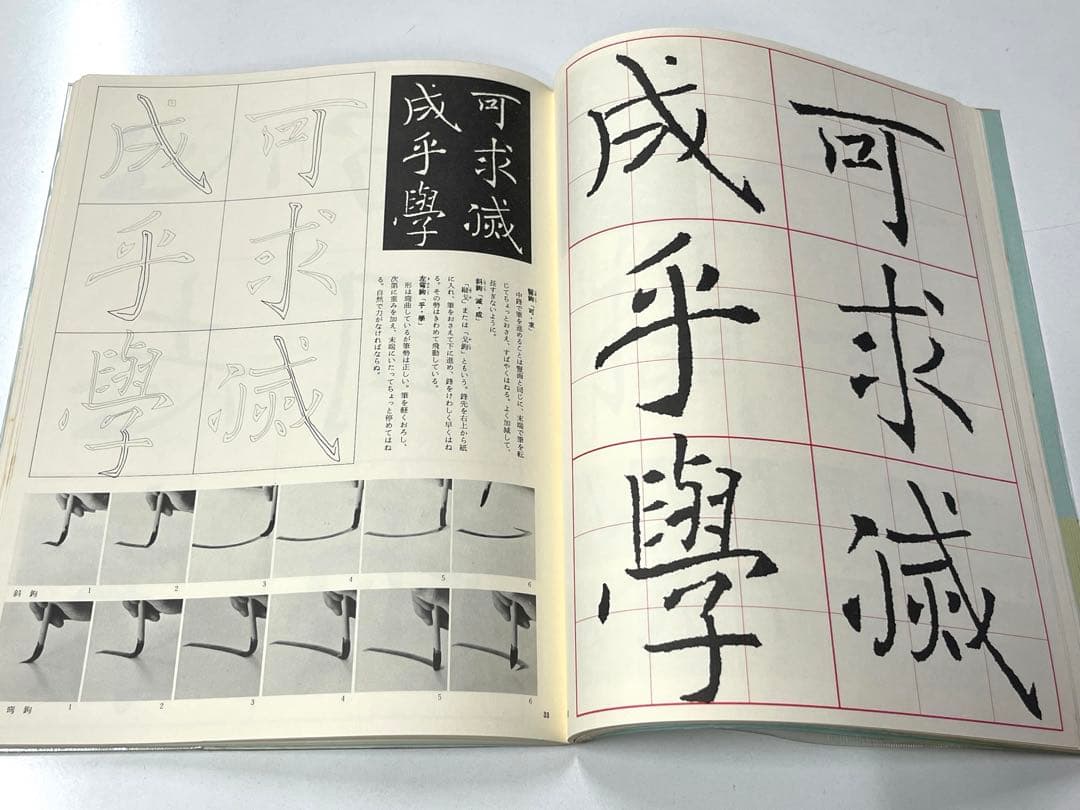 可求滅
成乎學
可求滅
成乎學
豎鉤「可・求」
中鋒で筆を進めることは豎画と同じに、末端で筆を転
じてちょっとおさえ、すばやくはねる。よく加減して、
長すぎないように。
斜鉤「滅・成」
「縦戈」または「戈鉤」ともいう。鋒先を右上から紙
に入れ、筆をおさえて下に進め、鋒をけわしく早くはね
る。その勢はきわめて飛動している。
左弯鉤「乎・學」
形は弯曲しているが筆勢は正しい。筆を軽くおろし、
次第に重みを加え、末端にいたってちょっと停めてはね
る。自然で力がなければならぬ。
斜鉤 1 2 3 4 5 6
弯鉤 1 2 3 4 5 6
33
可求滅
成乎學